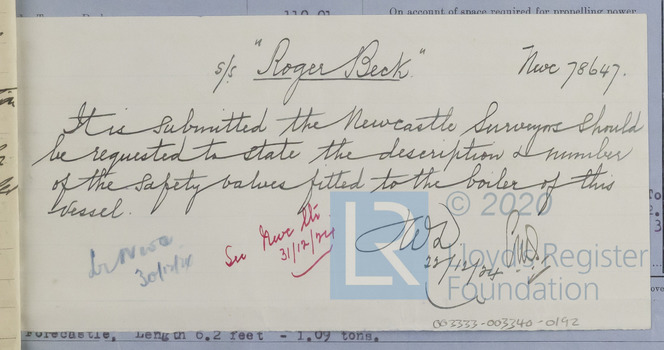 110.01
On account of space required for propelling power
s/s "Roger Beck" Nwc 78647.
It is submitted the Newcastle Surveyors should
be requested to state the description & number
of the safety valves fitted to the boiler of this
vessel.
© 2020
Lloyd's Register
Foundation
LR
30/12/24
See Nwc
31/12/24
22/12/24
003333-003340-0192
Forecastle, Length 6.2 feet - 1.09 tons.